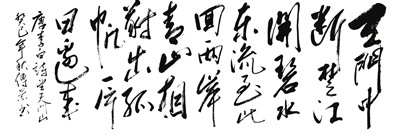 天門中
斷楚江
開碧水
東流至此
回兩岸
青山相
對出孤
帆一片
日邊來
唐李白詩望天門山
癸巳年秋